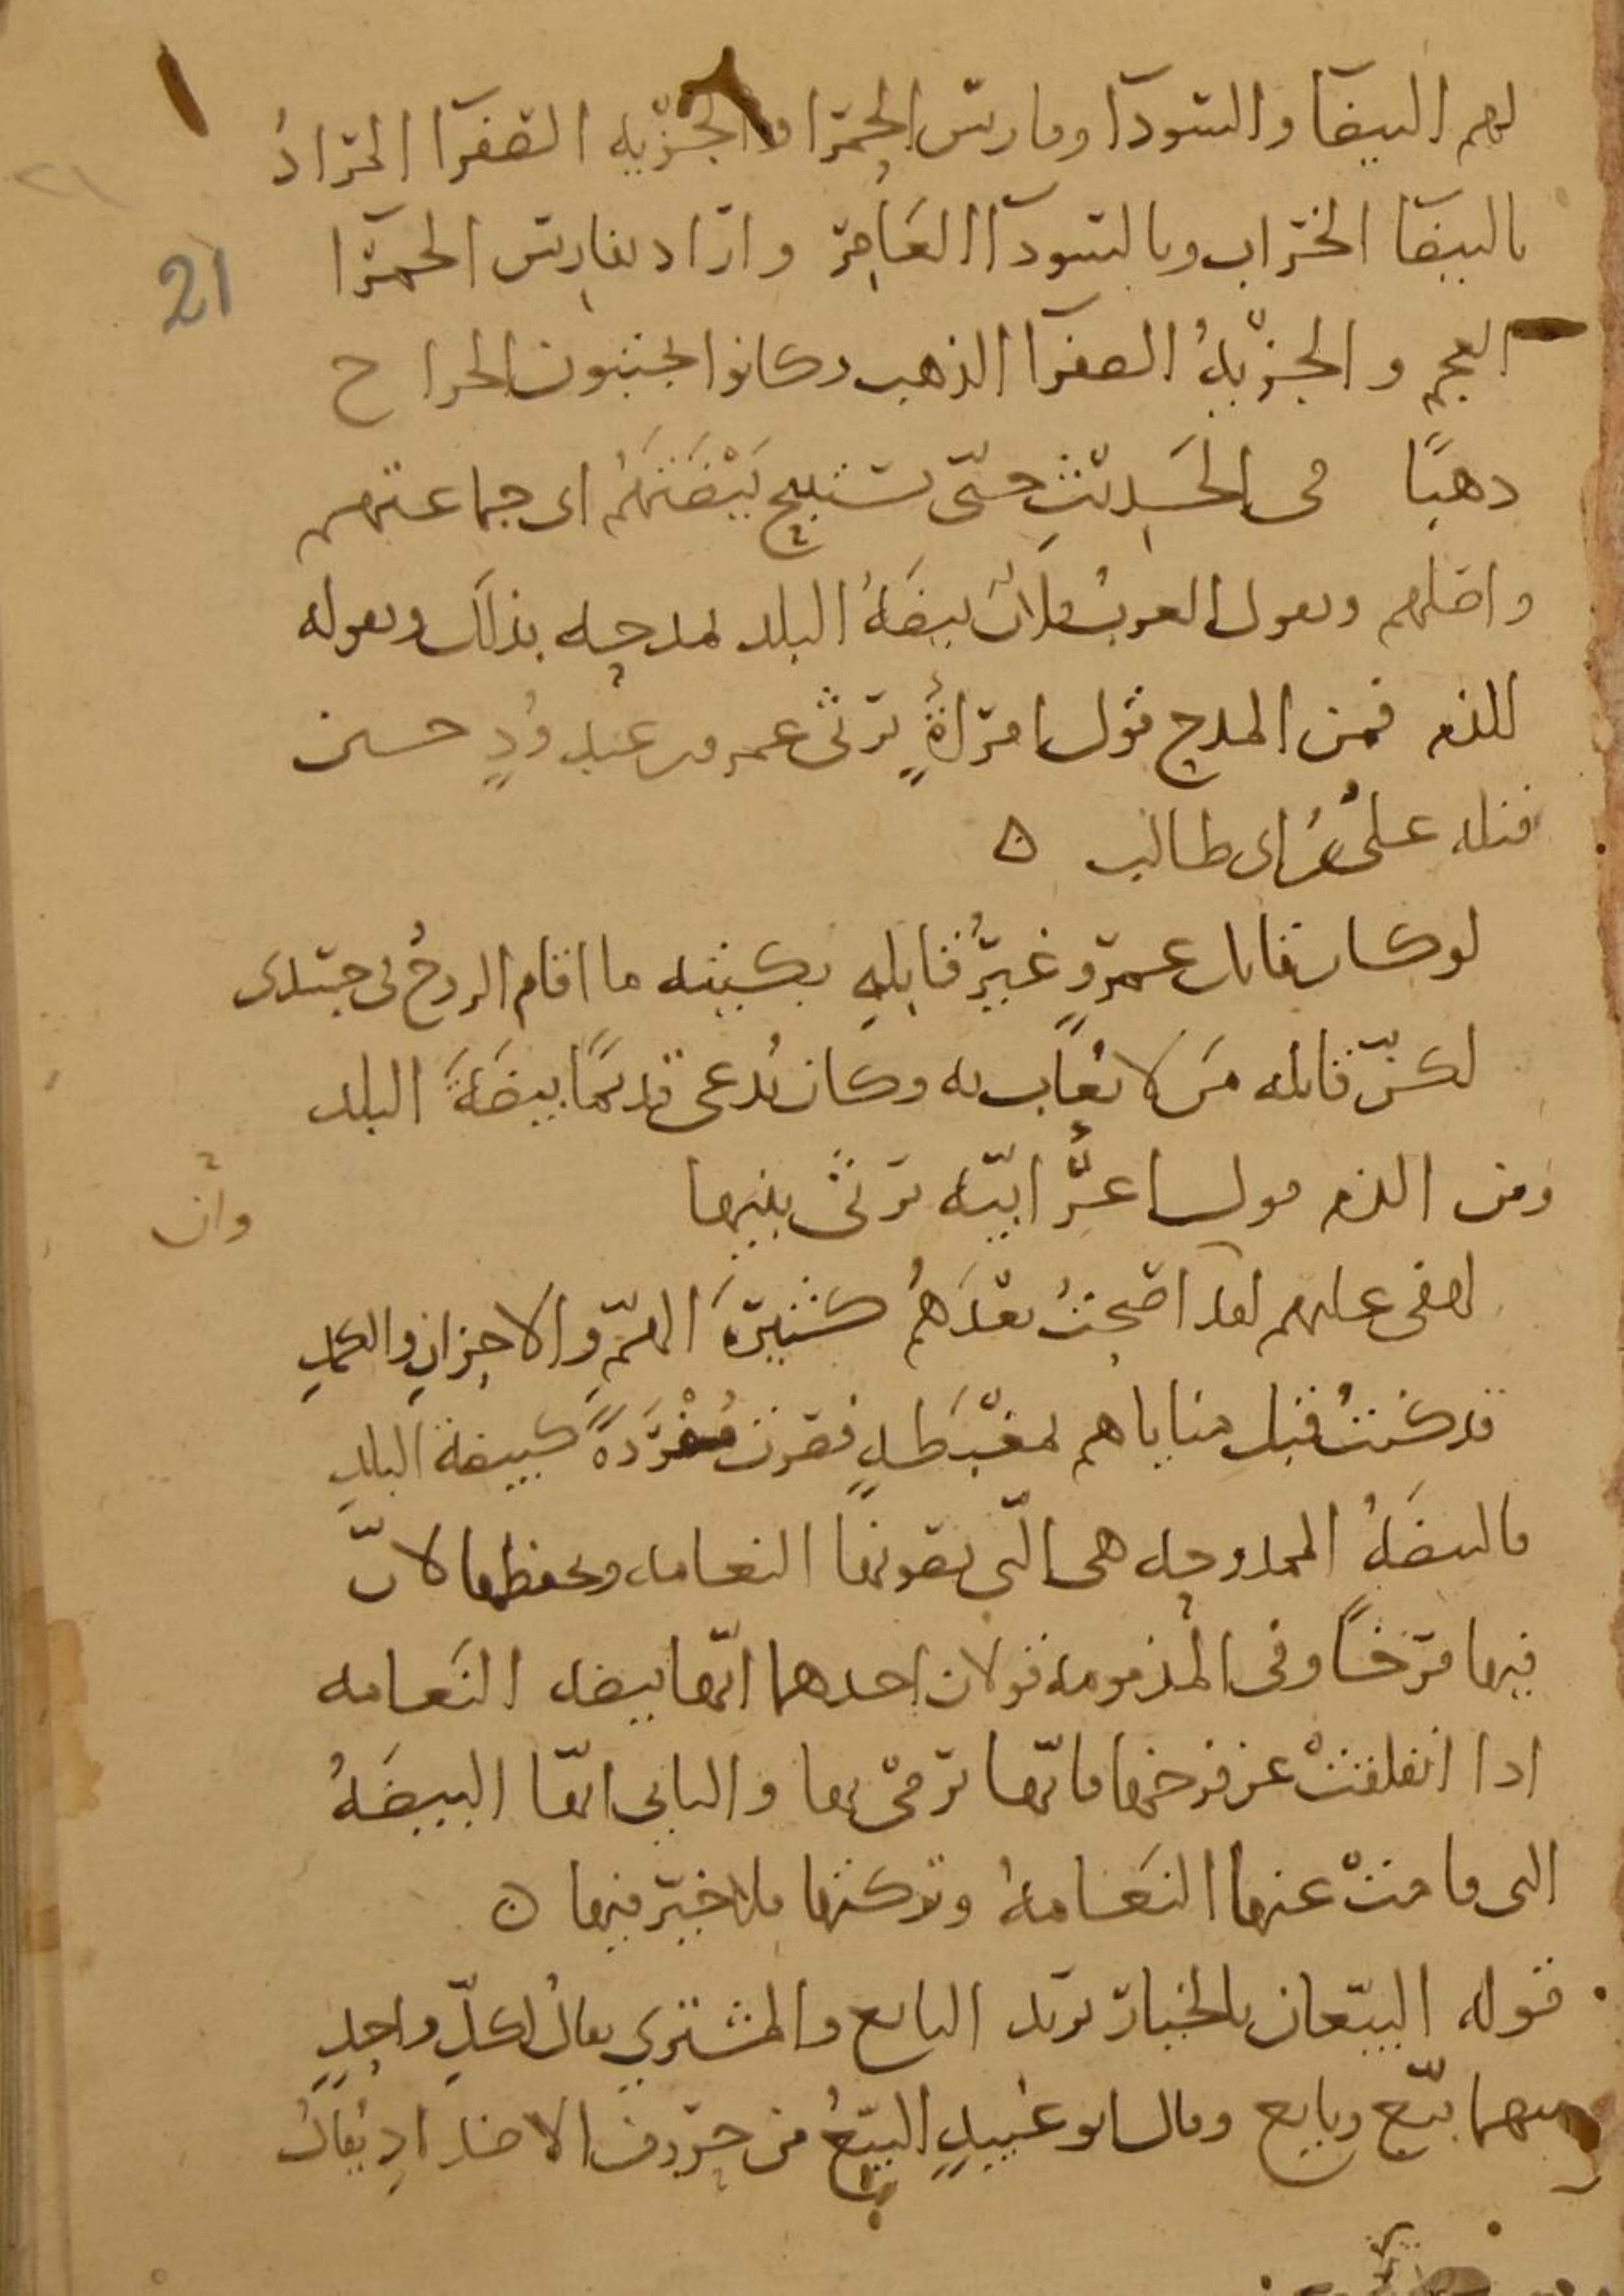 لهم البيضآ والسودآ وفارس الحمرا والجزية الصفرآ المراد
بالبيضآ الخراب وبالسودآ العامر واراد بفارس الحمرآ
21
العجم والجزيةُ الصفرآ الذهب وكانوا يجبون الخراج
ذهبًا في الحَديثِ حتّى تستبيح بَيْضَتهَمُ اي جماعتهم
واصلهم ويقول العرب فلانٌ بيضَةُ البلد تمدحه بذلك ويقوله
للذم فمن المدح قول امرأةٍ ترثي عمرو بن عبد ودٍ حين
قتله علىُّ بنُ ابى طالب ه
لو كان قاتل عمروٍ غيرُ قاتلِهِ بكيته ما اقام الروحُ في جسدى
لكنّ قاتله مَن لا يُعاب به وكان يُدعى قديمًا بيضَةَ البلد
ومن الذم قول اعرُّابيّه ترثى بنيها
وانّ
لهفى عليهم لقد اصبحتُ بعْدَهمُ كثيرَة الهمِّ والاحزانِ والكمدِ
قد كنتُ قبل مناياهم بمغْبَطَةٍ فصرتُ مُفْرَدَةً كبيضة البلدِ
فالبيضَةُ الممدوحة هى الّتي تصونها النعامه وتحفظها لانّ
فيها فرخًا وفى المذمومة قولان احدهما انّها بيضه النَعامه
اذا انفلقتْ عن فرخها فانّها ترمىْ بها والثاني انّها البيضَةُ
التى قامتْ عنها النَعَامةُ وتركتها فلا خير فيها ه
قوله البيّعان بالخيار تريد البايع والمشتري يقالُ لكلّ واحدٍ
منهما بيّع وبايع وقال ابو عُبيدٍ البيّعُ من حروف الاضدادِ يُقالُ